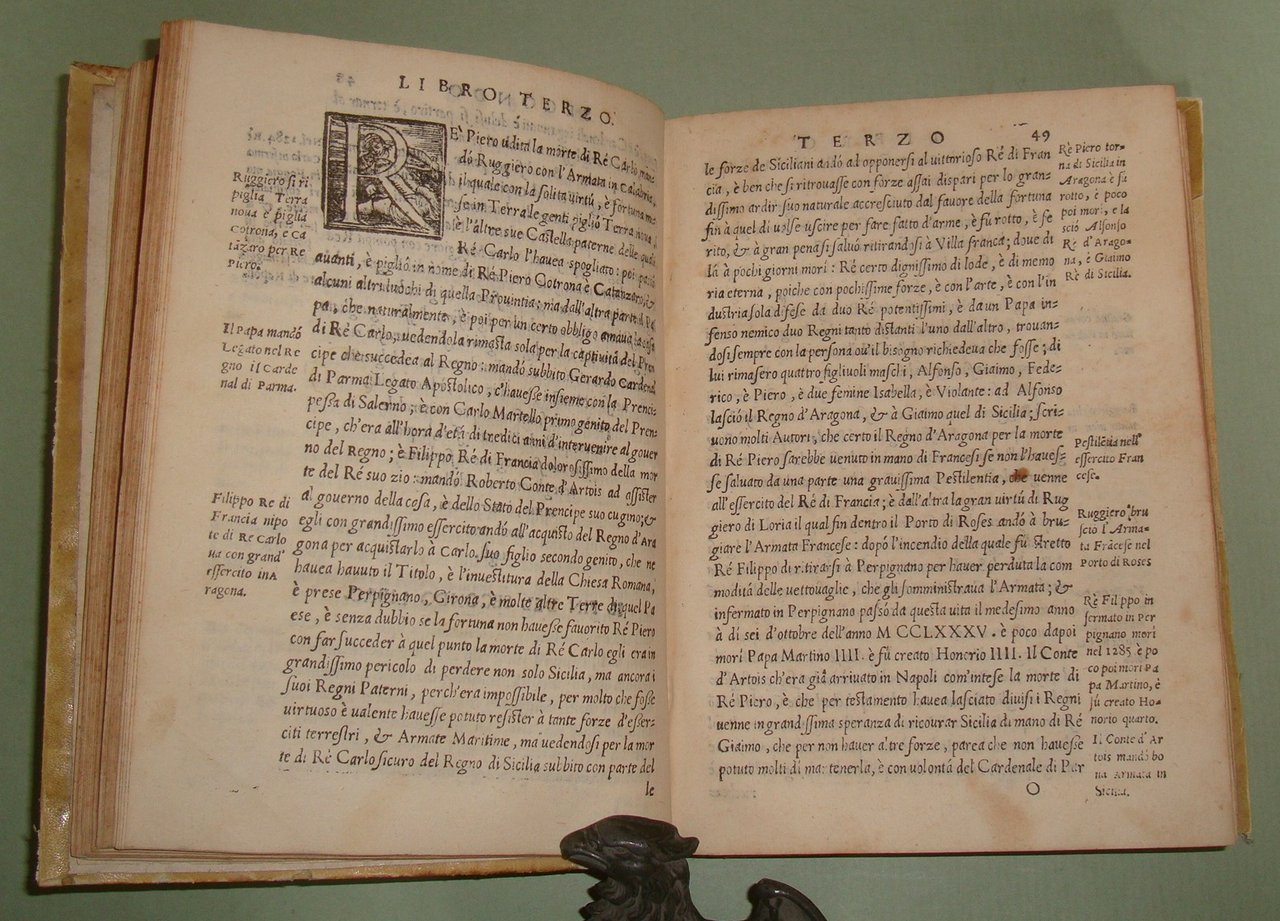 LIBRO TERZO.
RE Piero udita la morte di Ré Carlo
dó Ruggiero con l'Armata in Calabria,
il quale con la solita virtù, è fortuna
se in Terra le genti pigliò Terra nova,
è l'altre sue Castella paterne delle quali
Ré Carlo l'hauea spogliato: poi
auanti, è pigliò in nome di Ré Piero Cotrona è Catanzaro, &
alcuni altri luochi di quella Prouintia: ma dall'altra parte il Pa
pa, che naturalmente, è poi per un certo obbligo amaua
di Ré Carlo, uedendola rimasta sola per la captiuità del Pren
cipe che succedea al Regno: mandó subbito Gerardo Cardenal
di Parma Legato Apostolico, c'hauesse insieme con la Prenci=
pessa di Salerno; è con Carlo Martello primogenito del Pren=
cipe, ch'era all'hora d'età di tredici anni d'interuenire al gouer
no del Regno; è Filippo Ré di Francia dolorosissimo della mor
te del Ré suo zio: mandó Roberto Conte d'Artois ad assister
al gouerno della casa, è dello Stato del Prencipe suo cugino; &
egli con grandissimo essercito andó all'acquisto del Regno d'Ara
gona per acquistarlo à Carlo suo figlio secondo genito, che ne
hauea hauuto il Titolo, è l'inuestitura della Chiesa Romana,
è prese Perpignano, Girona, è molte altre Terre di quel Pa
ese, è senza dubbio se la fortuna non hauesse fauorito Ré Piero
con far succeder à quel punto la morte di Ré Carlo egli era in
grandissimo pericolo di perdere non solo Sicilia, ma ancora i
suoi Regni Paterni, perch'era impossibile, per molto che fosse
virtuoso è ualente hauesse potuto resister à tante forze d'esser=
citi terrestri, & Armate Maritime, ma uedendosi per la mor
te di Ré Carlo sicuro del Regno di Sicilia subbito con parte del
le
Ruggiero si ri
piglia Terra
noua è piglia
Cotrona, e Ca
tázaro per Re
Piero.
Il Papa mandó
Legato nel Re
gno il Carde
nal di Parma.
Filippo Re di
Francia nipo
te di Re Carlo
ua con grand'
essercito in A
ragona.
TERZO 49
le forze de Siciliani andó ad opponersi al uittorioso Ré di Fran
cia, è ben che si ritrouasse con forze assai dispari per lo gran=
dissimo ardir suo naturale accresciuto dal fauore della fortuna
fin à quel dì uolse uscire per fare fatto d'arme, è fù rotto, è fe
rito, & à gran pena si saluó ritirandosi à Villa franca; doue di
là à pochi giorni morì: Ré certo dignissimo di lode, è di memo
ria eterna, poiche con pochissime forze, è con l'arte, è con l'in
dustria sola difese da duo Ré potentissimi, è da un Papa in=
fenso nemico duo Regni tanto distanti l'uno dall'altro, trouan=
dosi sempre con la persona ou'il bisogno richiedeua che fosse; di
lui rimasero quattro figliuoli maschi, Alfonso, Giaimo, Fede=
rico, è Piero, è due femine Isabella, è Violante: ad Alfonso
lasció il Regno d'Aragona, & à Giaimo quel di Sicilia; scri=
uono molti Autori, che certo il Regno d'Aragona per la morte
di Ré Piero sarebbe uenuto in mano di Francesi se non l'haues=
se saluato da una parte una grauissima Pestilentia, che uenne
all'essercito del Ré di Francia; è dall'altra la gran virtù di Rug
giero di Loria il qual fin dentro il Porto di Roses andó à bru=
giare l'Armata Francese: dopó l'incendio della quale fù stretto
Ré Filippo di ritirarsi à Perpignano per hauer perduta la com
modità delle uettouaglie, che gli somministraua l'Armata; &
infermato in Perpignano passó da questa uita il medesimo anno
à di sei d'ottobre dell'anno MCCLXXXV. è poco dapoi
morì Papa Martino IIII. è fù creato Honorio IIII. Il Conte
d'Artois ch'era già arriuato in Napoli com'intese la morte di
Ré Piero, è che per testamento hauea lasciato diuisi i Regni
uenne in grandissima speranza di ricourar Sicilia di mano di Ré
Giaimo, che per non hauer altre forze, parea che non hauesse
potuto molti dì mantenerla, è con volontà del Cardenale di Par
O
Rè Piero tor=
na di Sicilia in
Aragona è fù
rotto, è poco
poi morì, e la
sciò Alfonso
Rè d'Arago=
na, è Giaimo
Rè di Sicilia.
Pestilētia nell'
essercito Fran
cese.
Ruggiero bru
sció l'Arma=
ta Frācese nel
Porto di Roses
Rè Filippo in
fermato in Per
pignano morì
nel 1285 è po
co poi morì Pa
pa Martino, è
fù creato Ho=
norio quarto.
Il Conte d'Ar
tois mandó bo
na Armata in
Sicilia.